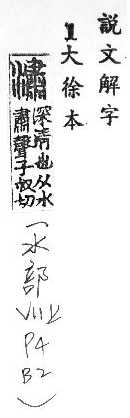 說文解字
1大徐本
潚 深清也从水
肅聲子叔切
(水部
VII上
P4
B2)